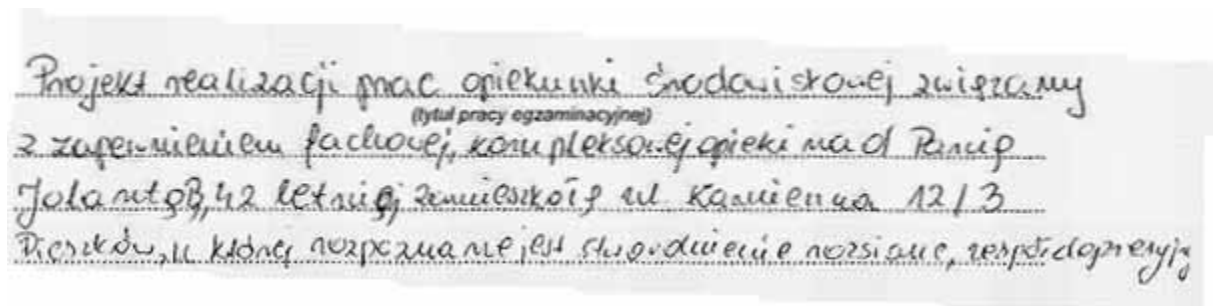 Projekt realizacji prac opiekunki środowiskowej związany
(tytuł pracy egzaminacyjnej)
z zapewnieniem fachowej, kompleksowej opieki nad Panią
Jolantą B, 42 letnią, zamieszkałą ul. Kamienna 12/3
u której rozpoznane jest stwardnienie rozsiane, zespół depresyjny